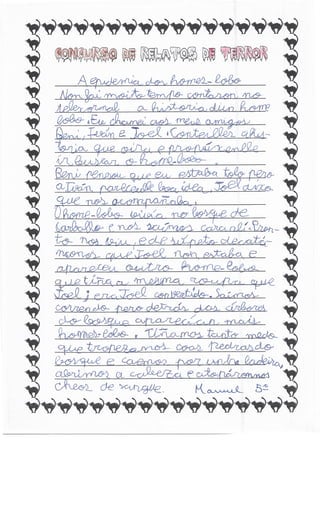 CONCURSO DE RELATOS DE TERROR
A epidemia dos homes-lobo
Non fai moito tempo contaron no
telexornal a historia dun home
lobo. Eu chamei aos meus amigos
Beni, Iván e Joel. Conteilles a his-
toria que oira e propúxenlle
ir buscar o home-lobo.
Beni pensou que eu estaba tolo pero
a Iván pareceulle boa idea. Joel dixo
que nos acompañaba.
O home-lobo vivía no bosque de
carballo e nós saímos cara alí. Pron-
to nos viu, e de súpeto decatá-
monos que Joel non estaba e
apareceu outro home-lobo
que tiña a mesma roupa que
Joel; era Joel convertido. Saímos
correndo pero detrás das árbores
do bosque aparecían máis
homes-lobo. Tiñamos tanto medo
que tropezamos coas pedras do
bosque e caemos por unha ladeira,
abrimos a cabeza e atopáronnos
cheos de sangue. Manuel 5º